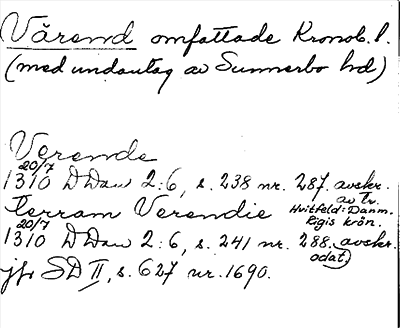 Värend omfattade Kronob. l.
(med undantag av Sunnerbo hd)
Verende
20/7
1310 DDan 2:6, s. 238 nr. 287. avskr.
av tr.
Hvitfeld: Danm.
Rigis krön.
terram Verendie
20/7
1310 DDan 2:6, s. 241 nr. 288. avskr.
odat)
jfr SD II, s. 627 nr. 1690.